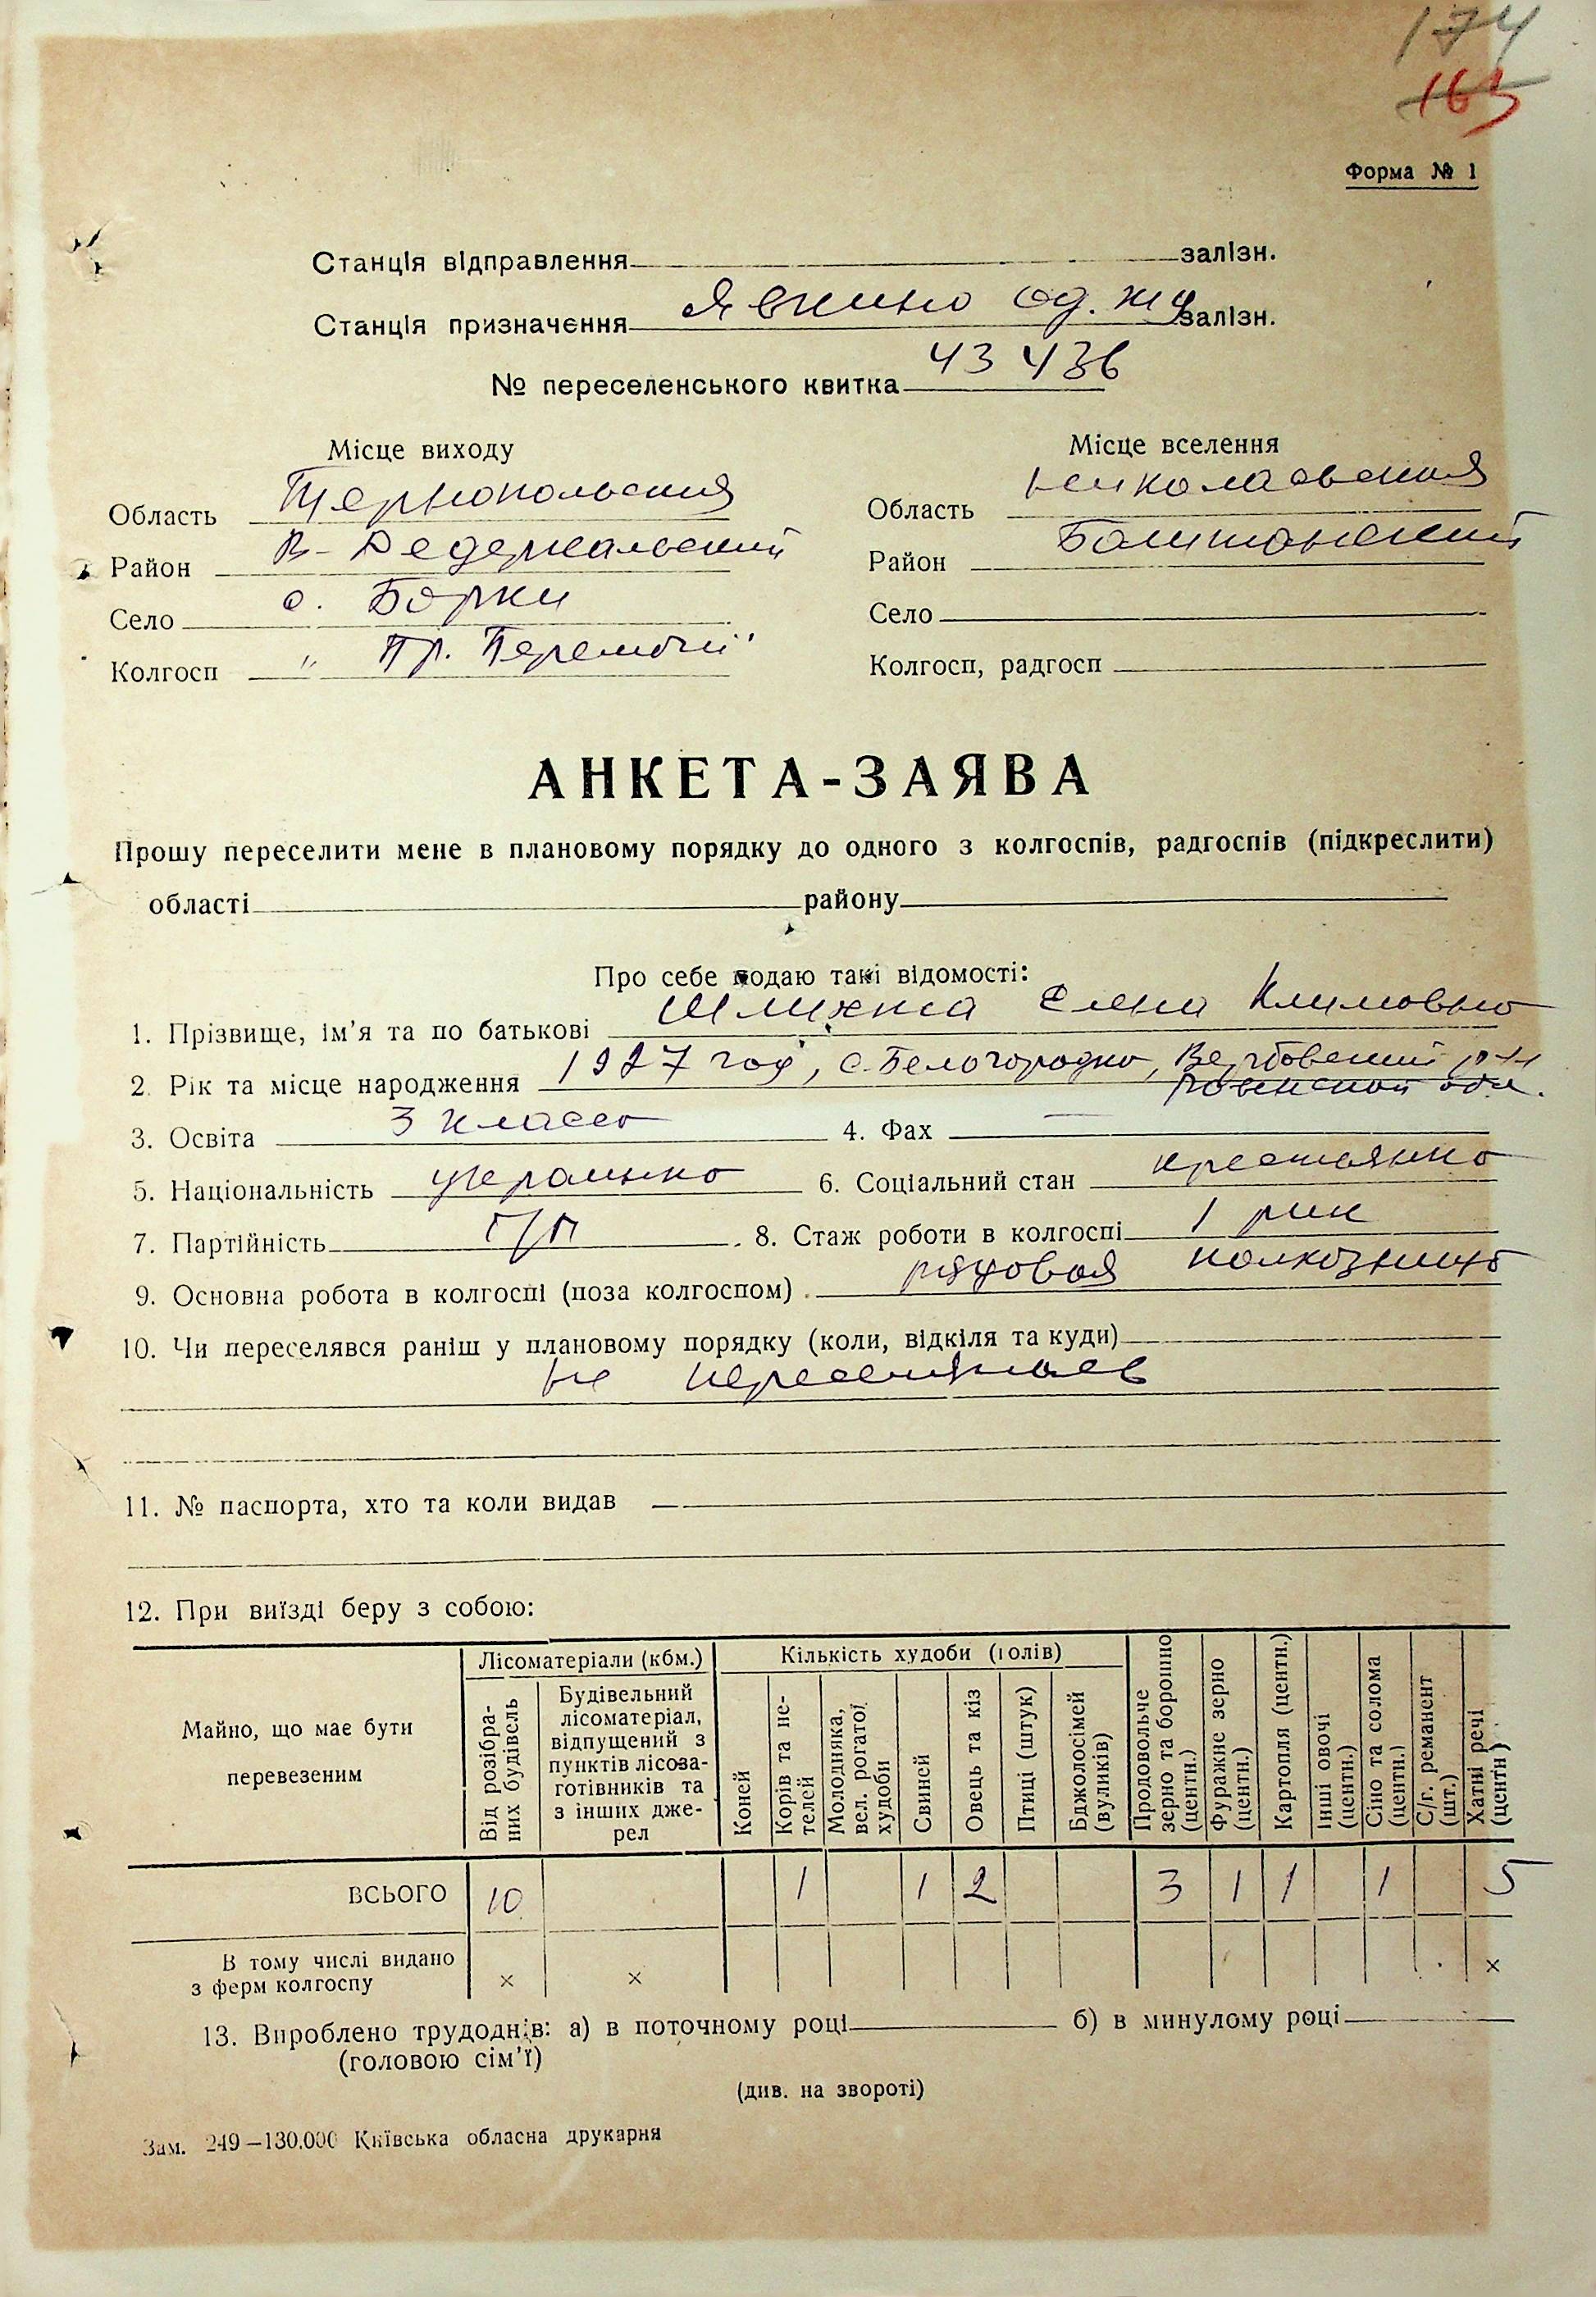 174
163
Форма № 1
Станція відправлення залізн.
Станція призначення Явкино од. жд залізн.
№ переселенського квитка 43436
Місце виходу
Місце вселення
Область Тернопольская
Область Николаевская
Район В-Дедеркальский
Район Баштанский
Село с. Борки
Село
Колгосп " Пр. Перемогии"
Колгосп, радгосп
АНКЕТА-ЗАЯВА
Прошу переселити мене в плановому порядку до одного з колгоспів, радгоспів (підкреслити)
області району
Про себе подаю такі відомості:
1. Прізвище, ім'я та по батькові Шлихта Елена Климовна
2. Рік та місце народження 1927 год, с. Белогородка, Вербовский р-н
Ровенской обл.
3. Освіта 3 класса 4. Фах —
5. Національність украинка 6. Соціальний стан крестьянка
7. Партійність б/п 8. Стаж роботи в колгоспі 1 рик
9. Основна робота в колгоспі (поза колгоспом) рядовая колхозница
10. Чи переселявся раніш у плановому порядку (коли, відкіля та куди)
не переселялась
11. № паспорта, хто та коли видав —
12. При виїзді беру з собою:
Майно, що має бути перевезеним
Лісоматеріали (кбм.)
Кількість худоби (голів)
Від розібраних будівель
Будівельний лісоматеріал, відпущений з пунктів лісозаготівників та з інших джерел
Коней
Корів та нетелей
Молодняка, вел. рогатої худоби
Свиней
Овець та кіз
Птиці (штук)
Бджолосімей (вуликів)
Продовольче зерно та борошно (центн.)
Фуражне зерно (центн.)
Картопля (центн.)
Інші овочі (центн.)
Сіно та солома (центн.)
С/г. реманент (шт.)
Хатні речі (центн)
ВСЬОГО 10 1 1 2 3 1 1 1 5
В тому числі видано
з ферм колгоспу × × ×
13. Вироблено трудоднів: а) в поточному році б) в минулому році
(головою сім'ї)
(див. на звороті)
Зам. 249—130.000 Київська обласна друкарня